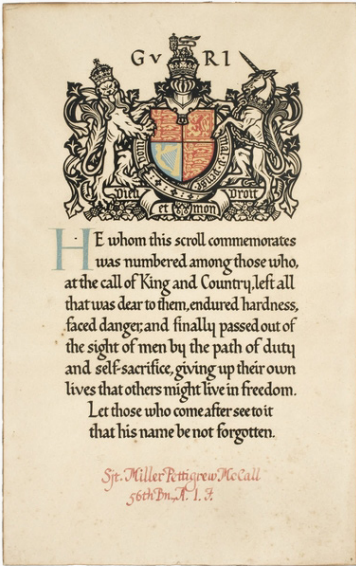 GvRI
Dieu et mon Droit
HE whom this scroll commemorates
was numbered among those who,
at the call of King and Country, left all
that was dear to them, endured hardness,
faced danger, and finally passed out of
the sight of men by the path of duty
and self-sacrifice, giving up their own
lives that others might live in freedom.
Let those who come after see to it
that his name be not forgotten.
Sjt. Miller Pettigrew McCall
56th Bn., A. I. F.